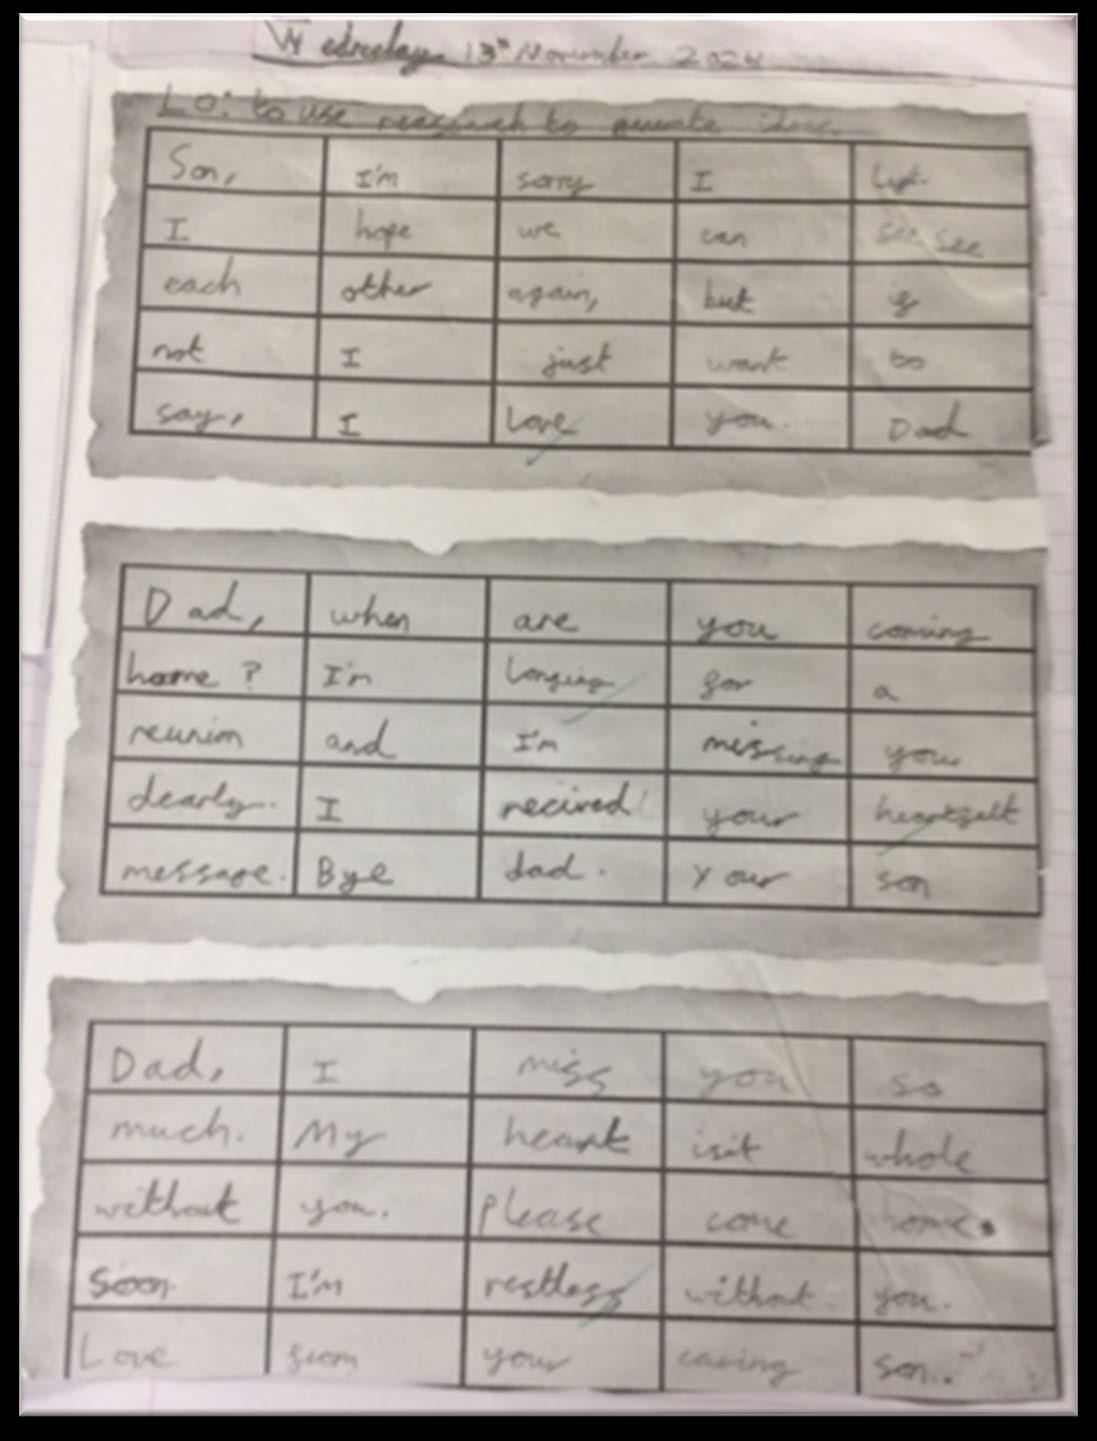 Wednesday 13th November 2024
Lo: to use research to ideas.
Son, I'm sorry I left.
I hope we can see see
each other again, but if
not I just want to
say, I Love you. Dad
Dad, when are you coming
home? I'm Longing for a
reunion and I'm missing you
dearly. I recived your heartfelt
message. Bye dad. Your son
Dad, I miss you so
much. My heart isn't whole
without you. Please come home.
soon. I'm restless without you.
Love from your caring son..